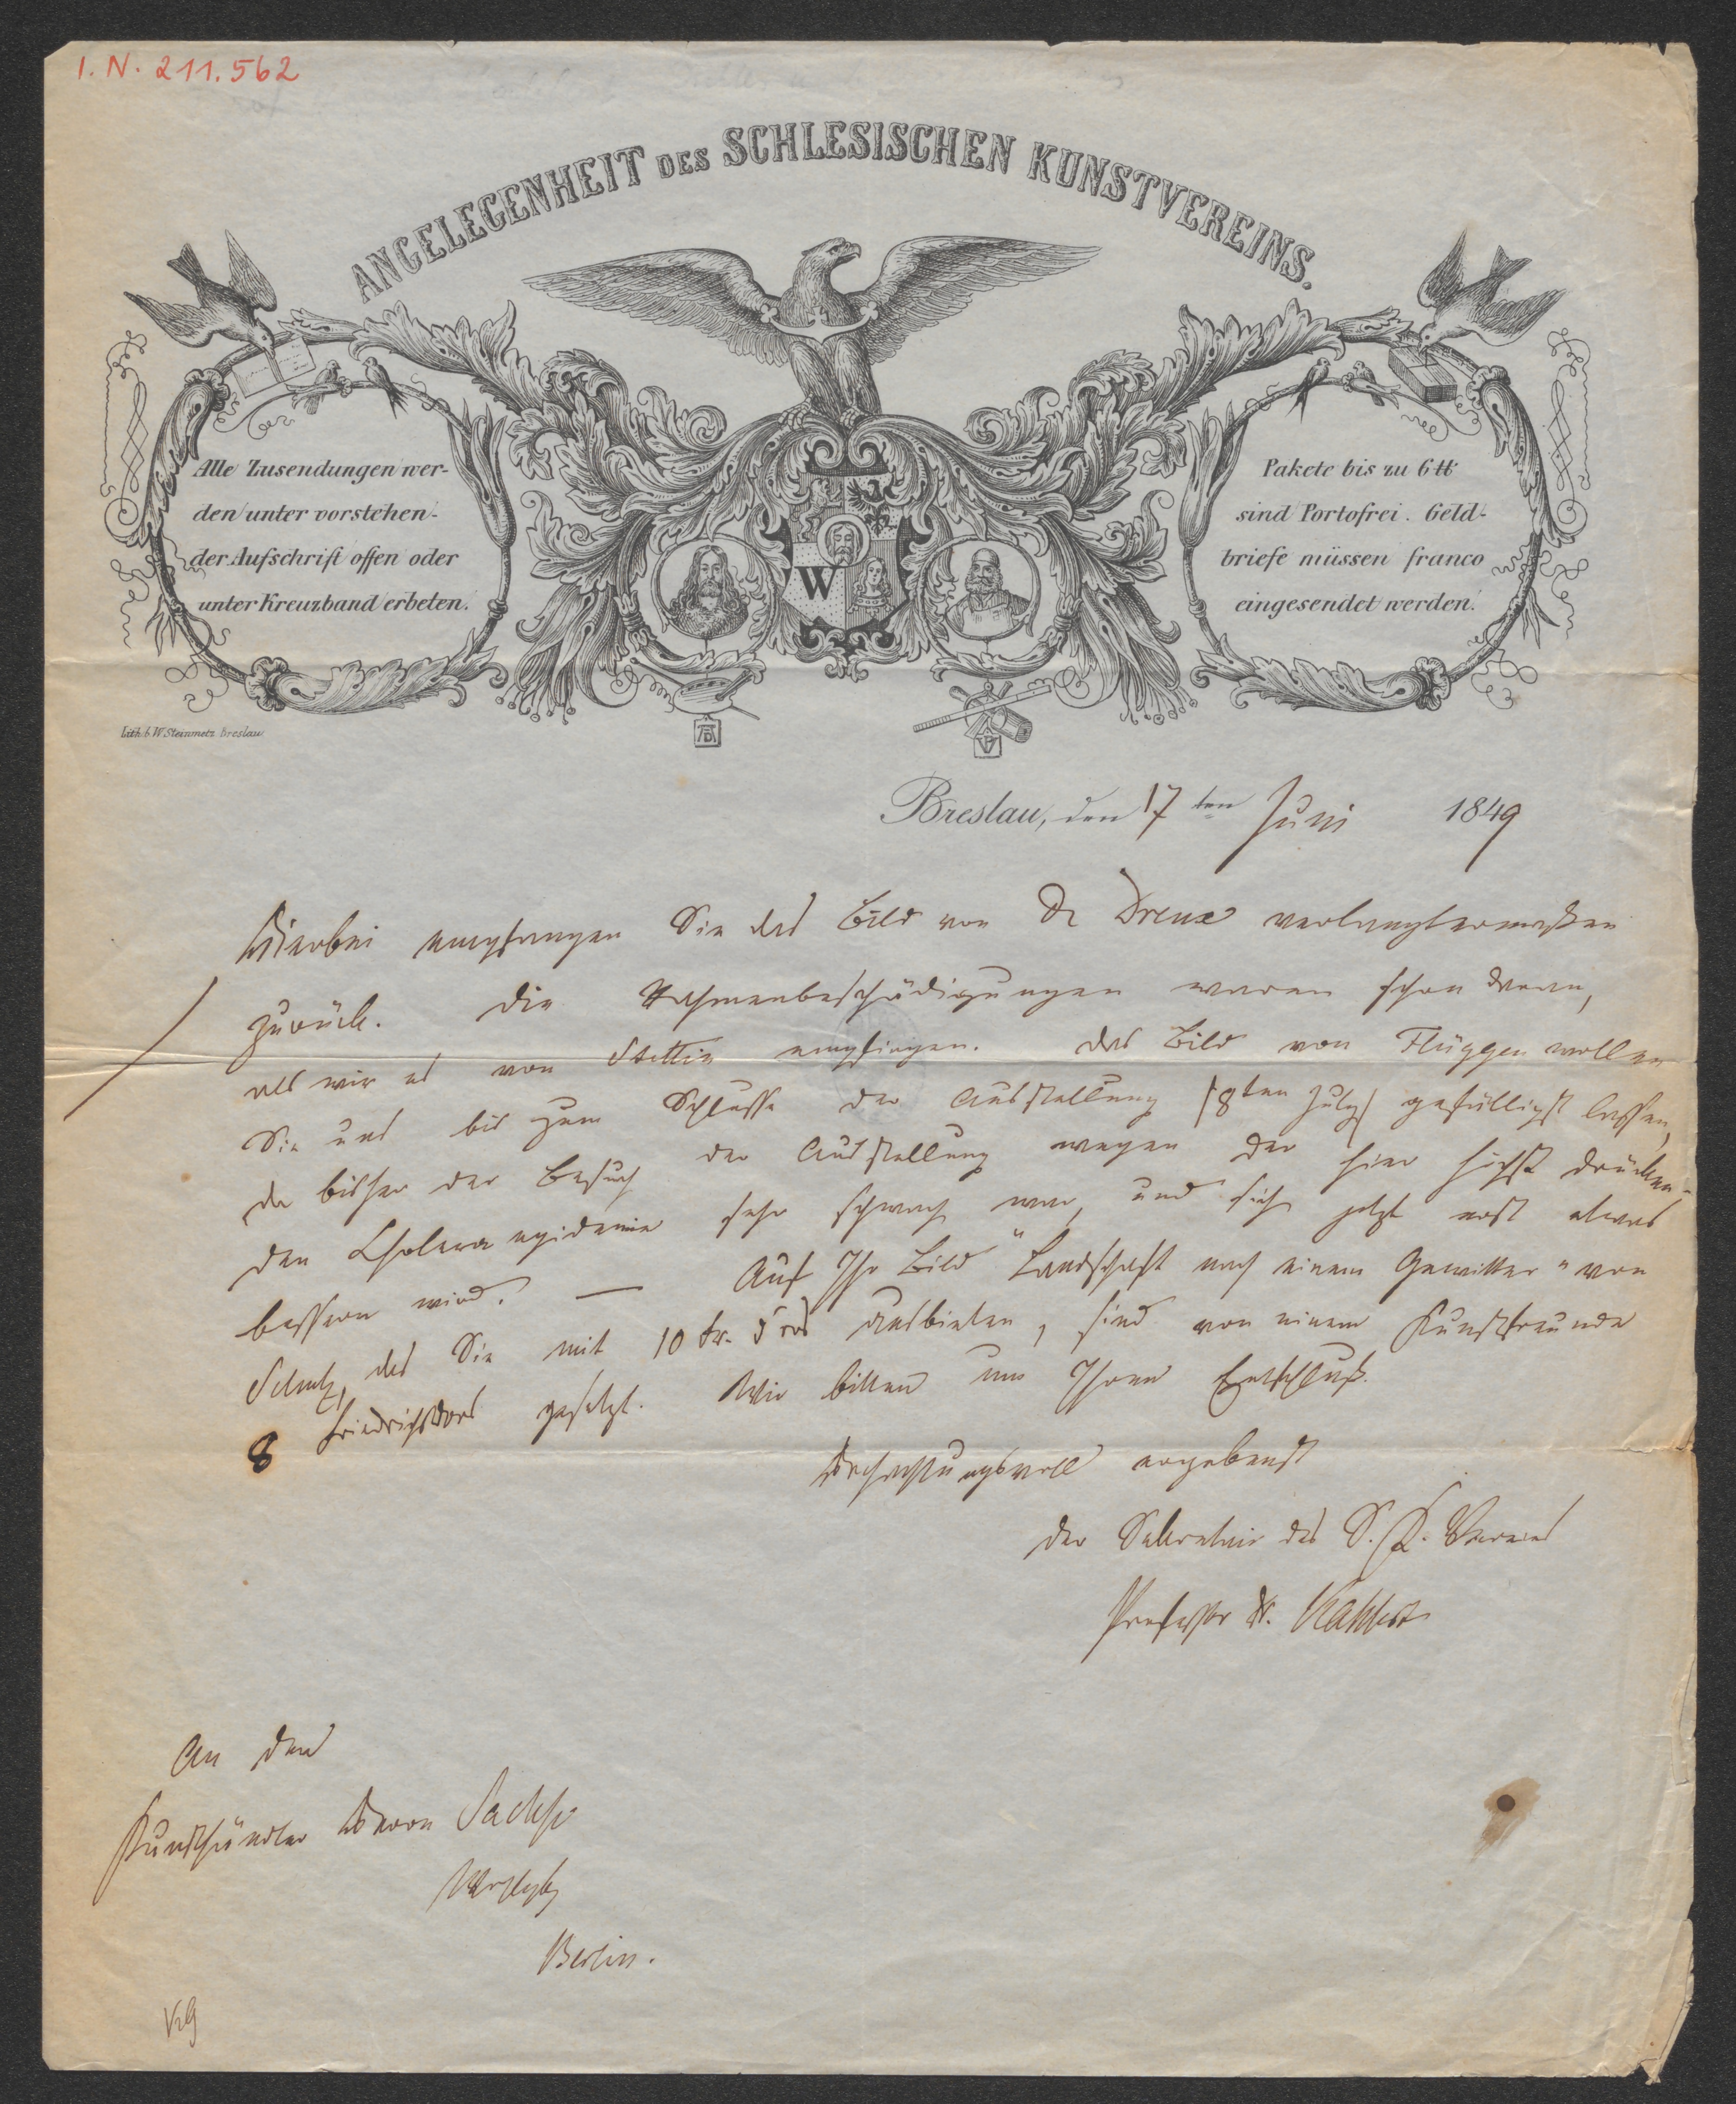 I. N. 211.562
ANGELEGENHEIT DES SCHLESISCHEN KUNSTVEREINS.
Alle Zusendungen wer-
den unter vorstehen-
der Aufschrift offen oder
unter Kreuzband erbeten.
W
Pakete bis zu 6 ℔
sind Portofrei. Geld-
briefe müssen franco
eingesendet werden.
Lith. b. W. Steinmetz Breslau
Breslau, den 17 ten Juni 1849
Hierbei empfangen Sie das Bild von De Dreux verlangtermaßen
zurück. Die Rahmenbeschädigungen waren schon daran,
als wir es von Stettin empfingen. Das Bild von Flüggen wollen
Sie uns bis zum Schlusse der Ausstellung (8ten July) gefälligst lassen,
da bisher der Besuch der Ausstellung wegen der hier höchst drücken-
den Cholera epidemie sehr schwach war, und sich jetzt erst etwas
bessern wird. — Auf Ihr Bild "Landschaft nach einem Gewitter" von
das Sie mit 10 fr. d'ors ausbieten, sind von einem Kunstfreunde
8 Friedrichsdors gesetzt. Wir bitten um Ihren Entschluß.
Hochachtungsvoll ergebenst
Der Sekretair des S. K. Vereins
Professor Dr. Kahlert
An den
Kunsthändler Herrn Sachse
Berlin.